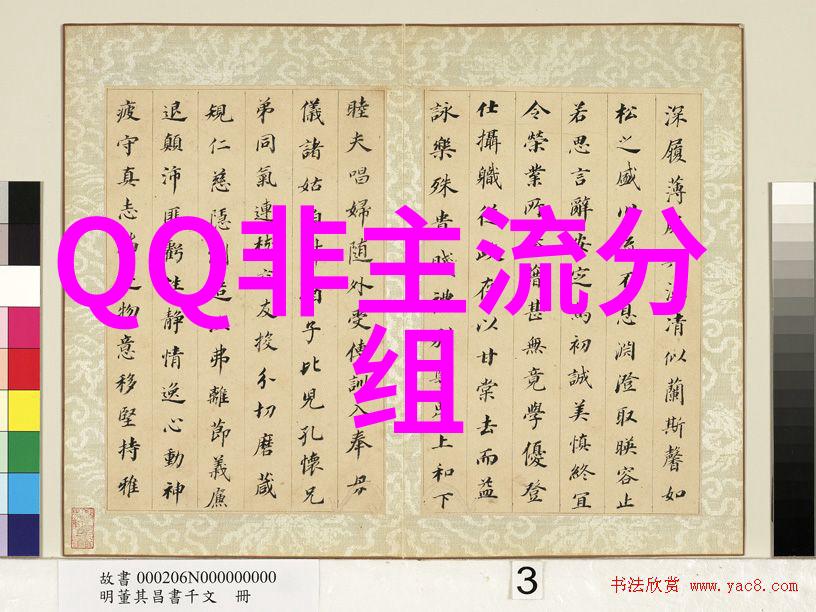 QQ非主流分
组
深履薄清似蘭斯馨如
松之盛川流不息淵澄取暎容止
若思言辭安定篤初誠美慎終宜
令榮業所藉甚無竟學優登
仕攝職從政存以甘棠去而益
詠樂殊貴賤禮別上和下
睦夫唱婦随外受傅訓入奉母
儀諸姑伯猶子比兒孔懷兄
弟同氣連枝交友投分切磨葴
規仁慈隱造弗離節義廉
退顛沛匪虧性静情逸心動神
疲守真志滿逐物意移堅持雅
故書 000206N000000000
明董其昌書千文 冊
3
书法欣赏 www.yac8.com